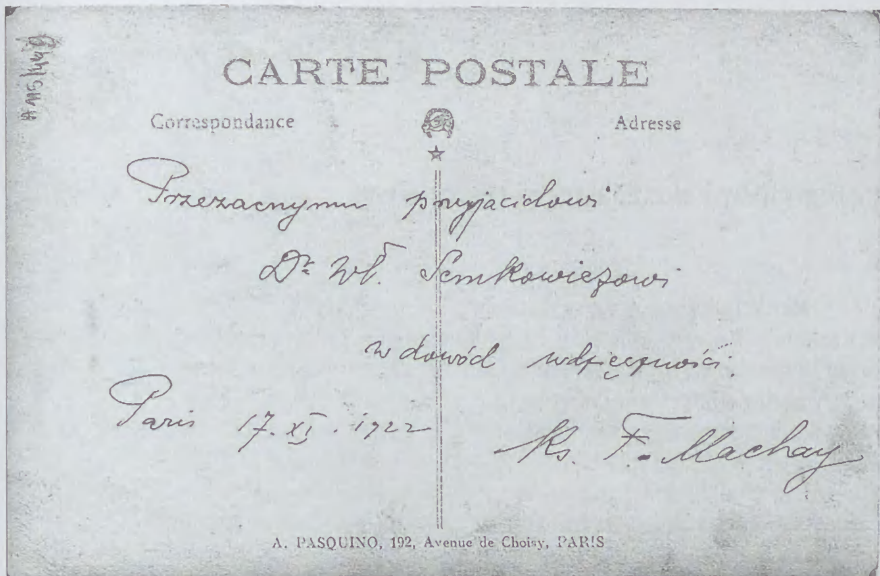 CARTE POSTALE
Correspondance
Adresse
Przezacnymu przyjacielowi
Dr Wł. Semkowiczowi
w dowód wdzięczności.
Paris 17. XI. 1922
Ks. F. Machay
A. PASQUINO, 192, Avenue de Choisy, PARIS